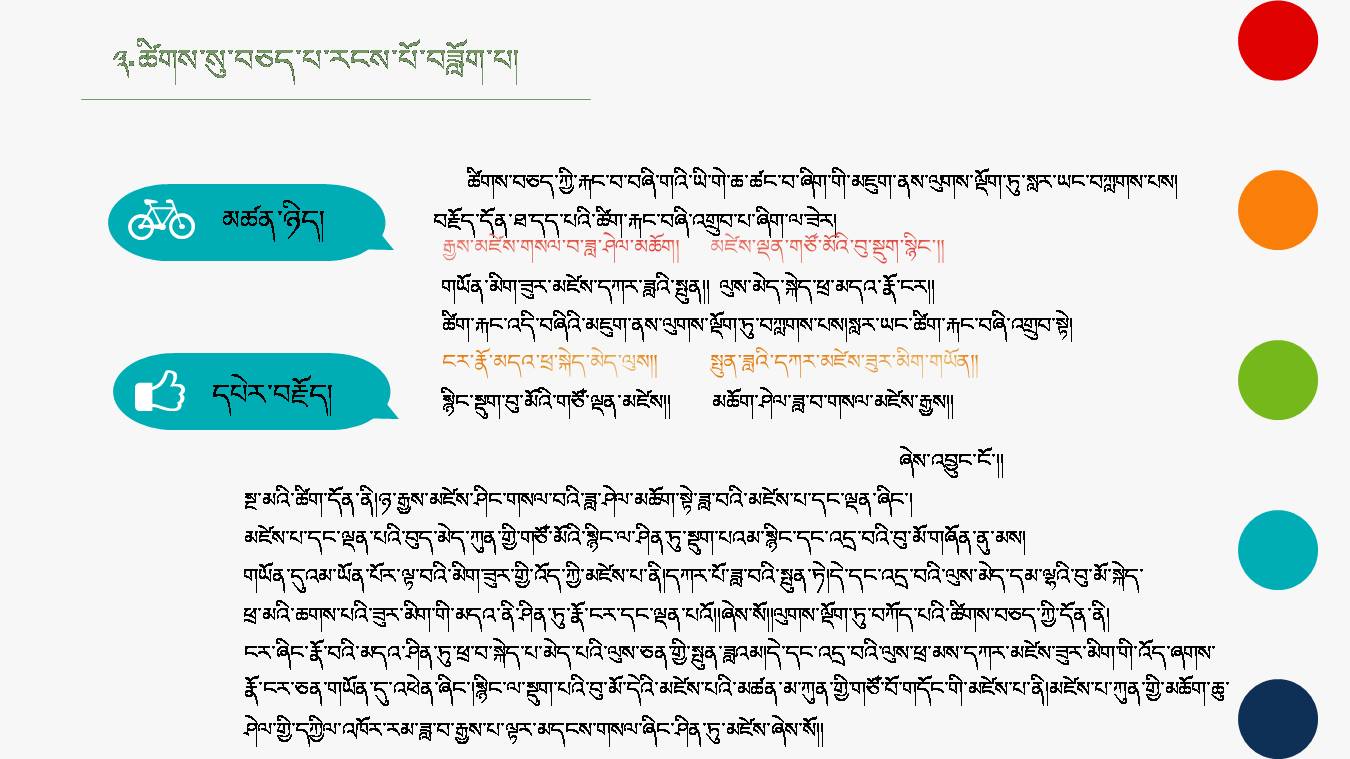 ༣.ཚིགས་སུ་བཅད་པ་རངས་པོ་བཟློག་པ།
མཚན་ཉིད།
ཚིགས་བཅད་ཀྱི་རྐང་བ་བཞི་གའི་ཡི་གེ་ཆ་ཚང་བ་ཞིག་གི་མཇུག་ནས་ལུགས་ལྡོག་ཏུ་སླར་ཡང་བཀླགས་པས།
བརྗོད་དོན་ཐ་དད་པའི་ཚིག་རྐང་བཞི་འགྲུབ་པ་ཞིག་ལ་ཟེར།
རྒྱས་མཛེས་གསལ་བ་ཟླ་ཤེལ་མཆོག། མཛེས་ལྡན་གཙོ་མོའི་བུ་སྡུག་སྙིང་།།
གཡོན་མིག་ཟུར་མཛེས་དཀར་ཟླའི་སྤུན།། ལུས་མེད་སྐེད་ཕྲ་མདའ་རྣོ་ངར།།
ཚིག་རྐང་འདི་བཞིའི་མཇུག་ནས་ལུགས་ལྡོག་ཏུ་བཀླགས་པས།སླར་ཡང་ཚིག་རྐང་བཞི་འགྲུབ་སྟེ།
དཔེར་བརྗོད།
ངར་རྣོ་མདའ་ཕྲ་སྐེད་མེད་ལུས།། སྤུན་ཟླའི་དཀར་མཛེས་ཟུར་མིག་གཡོན།།
སྙིང་སྡུག་བུ་མོའི་གཙོ་ལྡན་མཛེས།། མཆོག་ཤེལ་ཟླ་བ་གསལ་མཛེས་རྒྱས།།
ཞེས་འབྱུང་ངོ་།།
སྔ་མའི་ཚིག་དོན་ནི།ཉ་རྒྱས་མཛེས་ཤིང་གསལ་བའི་ཟླ་ཤེལ་མཆོག་སྟེ་ཟླ་བའི་མཛེས་པ་དང་ལྡན་ཞིང་།
མཛེས་པ་དང་ལྡན་པའི་བུད་མེད་ཀུན་གྱི་གཙོ་མོའི་སྙིང་ལ་ཤིན་ཏུ་སྡུག་པའམ་སྙིང་དང་འདྲ་བའི་བུ་མོ་གཞོན་ནུ་མས།
གཡོན་དུ་འམ་ཡོན་པོར་ལྟ་བའི་མིག་ཟུར་གྱི་འོད་ཀྱི་མཛེས་པ་ནི།དཀར་པོ་ཟླ་བའི་སྤུན་ཏེ།དེ་དང་འདྲ་བའི་ལུས་མེད་དམ་ལྷའི་བུ་མོ་སྐེད་
ཕྲ་མའི་ཆགས་པའི་ཟུར་མིག་གི་མདའ་ནི་ཤིན་ཏུ་རྣོ་ངར་དང་ལྡན་པའོ།།ཞེས་སོ།།ལུགས་ལྡོག་ཏུ་བཀོད་པའི་ཚིགས་བཅད་ཀྱི་དོན་ནི།
ངར་ཞིང་རྣོ་བའི་མདའ་ཤིན་ཏུ་ཕྲ་བ་སྐེད་པ་མེད་པའི་ལུས་ཅན་གྱི་སྤུན་ཟླའམ།དེ་དང་འདྲ་བའི་ལུས་ཕྲ་མས་དཀར་མཛེས་ཟུར་མིག་གི་འོད་ཞགས་
རྣོ་ངར་ཅན་གཡོན་དུ་འཕེན་ཞིང་།སྙིང་ལ་སྡུག་པའི་བུ་མོ་དེའི་མཛེས་པའི་མཚན་མ་ཀུན་གྱི་གཙོ་བོ་གདོང་གི་མཛེས་པ་ནི།མཛེས་པ་ཀུན་གྱི་མཆོག་ཆུ་
ཤེལ་གྱི་དཀྱིལ་འཁོར་རམ་ཟླ་བ་རྒྱས་པ་ལྟར་མདངས་གསལ་ཞིང་ཤིན་ཏུ་མཛེས་ཞེས་སོ།།